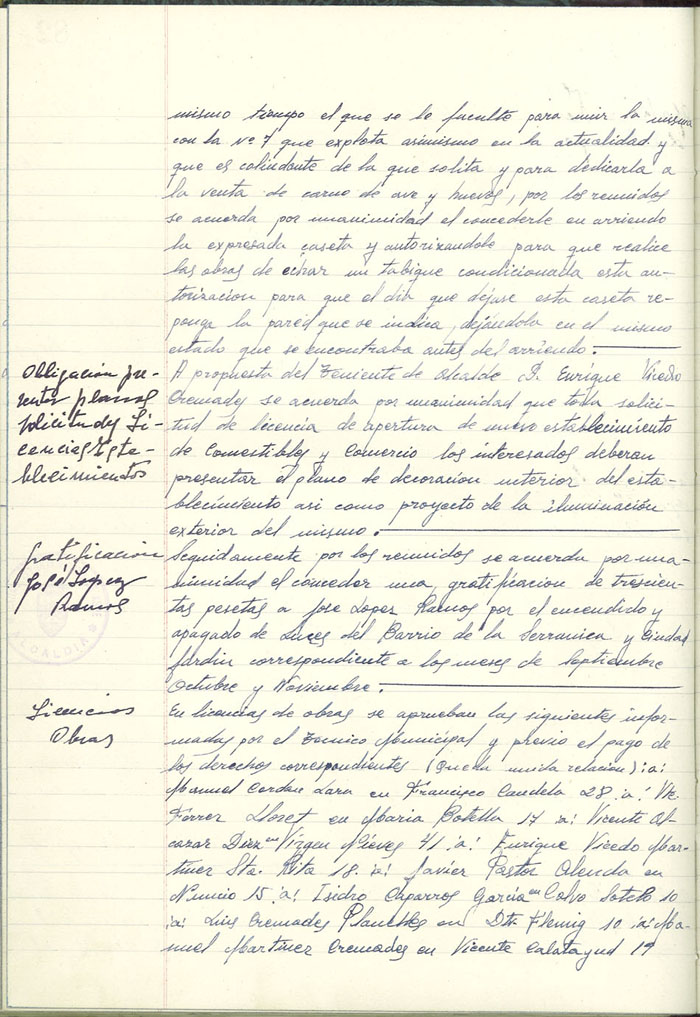 mismo tiempo el que se le faculte para unir la misma
con la nº 7 que explota asimismo en la actualidad y
que es colindante de la que solita y para dedicarla a
la venta de carne de ave y huevos, por los reunidos
se acuerda por unanimidad el concederle en arriendo
la expresada caseta y autorizandole para que realice
las obras de echar un tabique condicionada esta au-
torización para que el dia que dejase esta caseta re-
ponga la pared que se indica, dejándola en el mismo
estado que se encontraba antes del arriendo.
Obligación pre-
sentar planos
solicitudes Li-
cencias Esta-
blecimientos
A propuesta del Teniente de Alcalde D. Enrique Vicedo
Cremades se acuerda por unanimidad que toda solici-
tud de licencia de apertura de nuevo establecimiento
de Comestibles y Comercio los interesados deberan
presentar el plano de decoracion interior del esta-
blecimiento asi como proyecto de la iluminación
exterior del mismo.
gratificación
José Lopez
Ramos
Seguidamente por los reunidos se acuerda por una-
nimidad el conceder una gratificacion de trescien-
tas pesetas a Jose Lopez Ramos por el encendido y
apagado de Luces del Barrio de la Serranica y Ciudad
Jardin correspondiente a los meses de Septiembre
Octubre y Noviembre.
Licencias
Obras
En licencias de obras se aprueban las siguientes infor-
madas por el Tecnico Municipal y previo el pago de
los derechos correspondientes (Queda unida relacion): a:
Manuel Cerdan Lara en Francisco Candela 28 :a:
Ferrer Lloret en Maria Botella 17 :a: Vicente Al-
cazar Diez en Virgen Nieves 41 :a: Enrique Vicedo Mar-
tinez Sta. Rita 18 :a: Javier Pastor Alenda en
Nuncio 15 :a: Isidro Caparros Garcia en Calvo Sotelo 10
:a: Luis Cremades Planelles en Dtr. Fleming 10 :a: Ma-
nuel Martinez Cremades en Vicente Calatayud 19
ALCALDIA